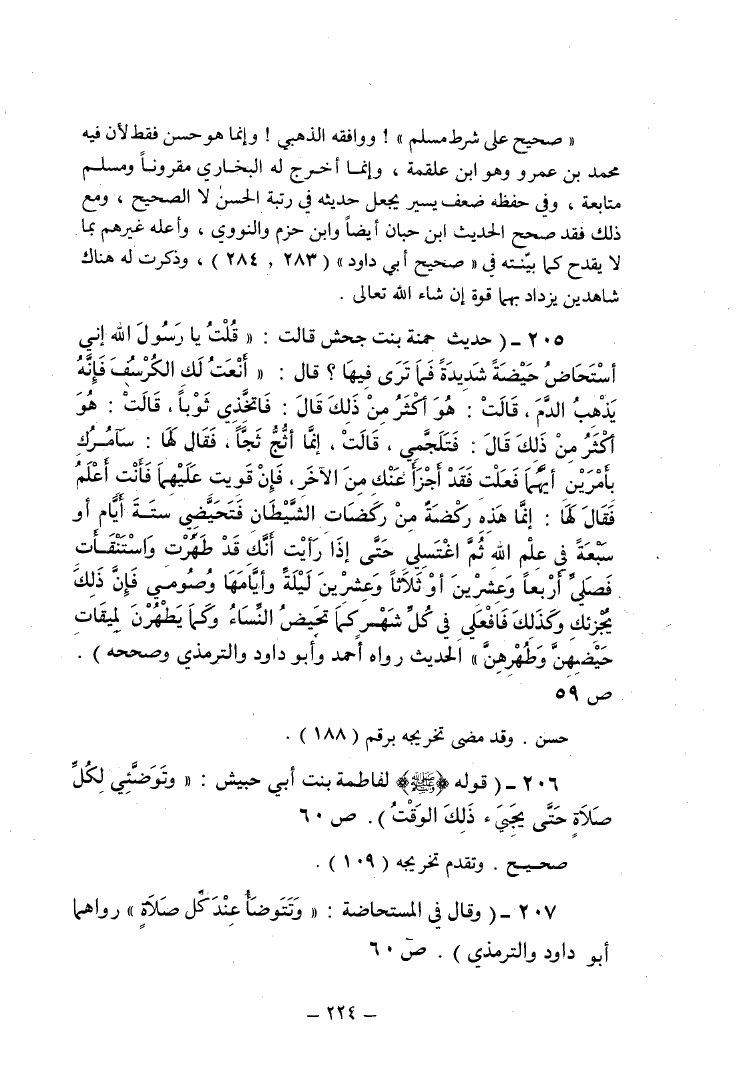 « صحيح على شرط مسلم » ! ووافقه الذهبي ! وإنما هو حسن فقط لأن فيه
محمد بن عمرو وهو ابن علقمة ، وإنمـا أخـرج له البخـاري مقرونـاً ومسلـم
متابعة ، وفي حفظه ضعف يسير يجعل حديثه في رتبة الحسن لا الصحيح ، ومع
ذلك فقد صحح الحديث ابن حبان أيضاً وابن حزم والنووي ، وأعله غيرهم بما
لا يقدح كما بيّنته في « صحيح أبي داود » ( ٢٨٣ , ٢٨٤ ) ، وذكرت له هناك
شاهدين يزداد بهما قوة إن شاء الله تعالى .
٢٠٥ - ( حديث حمنة بنت جحش قالت : « قُلْتُ يا رَسُولَ الله إني
أسْتَحَاضُ حَيْضَةً شَديدَةً فَمَا تَرَى فيهَا ؟ قال : « أَنْعَتُ لَك الكُرْسُفَ فَإِنَّهُ
يَذْهبُ الدَّمَ ، قَالَتْ : هُوَ أَكْثَرُ منْ ذَلكَ قَالَ : فَاتَّخذي ثَوْباً ، قَالَتْ : هُوَ
أكْثَرُ منْ ذَلكَ قَالَ : فَتَلَجَّمي ، قَالَتْ ، إنَّمَا أَثُجُّ ثَجَّاً ، فَقَال لَهَا : سَآمُـرُك
بأمْرَيْن أيَّهُمَا فَعَلْت فَقَدْ أجْزَأ عَنْك منَ الآخَر ، فَإنْ قَويت عَلَيْهمَا فَأَنْت أعْلَمُ
فَقَالَ لَهَا : إنَّمَا هَذه رَكْضَةٌ منْ رَكَضَات الشَّيْطَان فَتَحَيَّضي ستَـةَ أيَّام أو
سَبْعَةً في علْم الله ثُمَّ اغْتَسلي حَتَّى إذَا رَأيْت أنَّك قَدْ طَهُرْت وَاسْتَنْقَـأت
فَصَلِّي أرْبعاً وَعشْرينَ أوْ ثَلاثاً وَعشْرينَ لَيْلَةً وأيَّامَهَا وَصُومـي فَإِنَّ ذَلكَ
يُجْزئك وكَذَلكَ فَافْعَلي في كُلِّ شَهْـر كـمَا تَحيضُ النِّسَاءُ وكَمَا يَطْهُرْنَ لميقَات
حَيْضهنَّ وَطُهْرهنَّ » الحديث رواه أحمد وأبو داود والترمذي وصححه ) .
ص ٥٩
حسن . وقد مضى تخريجه برقم ( ١٨٨ ) .
٢٠٦ - ( قوله ﷺ لفاطمة بنت أبي حبيش : « وتَوَضَّئي لكُلِّ
صَلاَةٍ حَتَّى يَجيَء ذَلكَ الوَقْتُ ) . ص ٦٠
صحـيـح . وتقدم تخريجه ( ١٠٩ ) .
٢٠٧ - ( وقال في المستحاضة : « وَتَتَوضأُ عنْدَ كُل صَلاَةٍ » رواهما
أبو داود والترمذي ) . ص ٦٠
– ٢٢٤ –